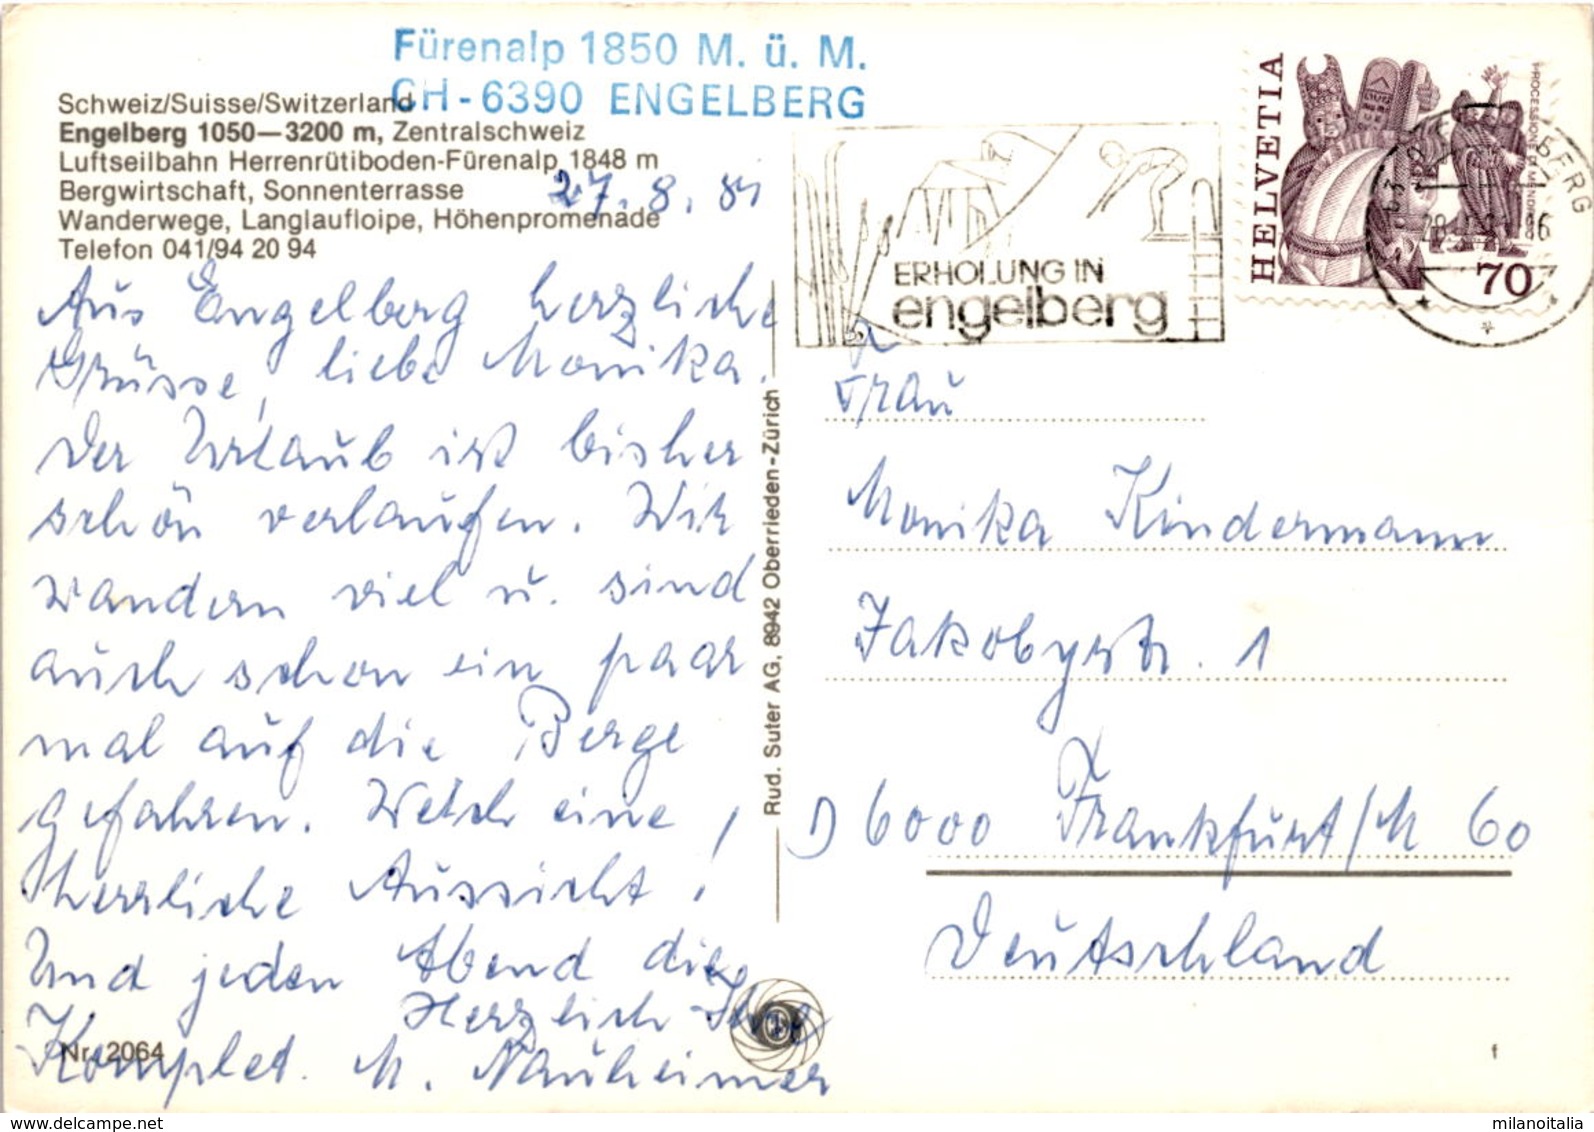 Fürenalp 1850 M. ü. M.
CH-6390 ENGELBERG
Schweiz/Suisse/Switzerland
Engelberg 1050—3200 m, Zentralschweiz
Luftseilbahn Herrenrütiboden-Fürenalp 1848 m
Bergwirtschaft, Sonnenterrasse
Wanderwege, Langlaufloipe, Höhenpromenade
Telefon 041/94 20 94
27. 8. 81
Aus Engelberg herzliche
Grüsse, liebe Monika.
Der Urlaub ist bisher
schön verlaufen. Wir
wandern viel u. sind
auch schon ein paar
mal auf die Berge
gefahren. Welch eine
herrliche Aussicht!
Und jeden Abend die
Komplet.
Herzlich Ihre
M. Nauheimer
Nr. 2064
Rud. Suter AG, 8942 Oberrieden-Zürich
ERHOLUNG IN
engelberg
HELVETIA
PROCESSIONE DI MENDRISIO
70
Frau
Monika Kindermann
Jakobystr. 1
D 6000 Frankfurt/M 60
Deutschland
f
milanoitalia